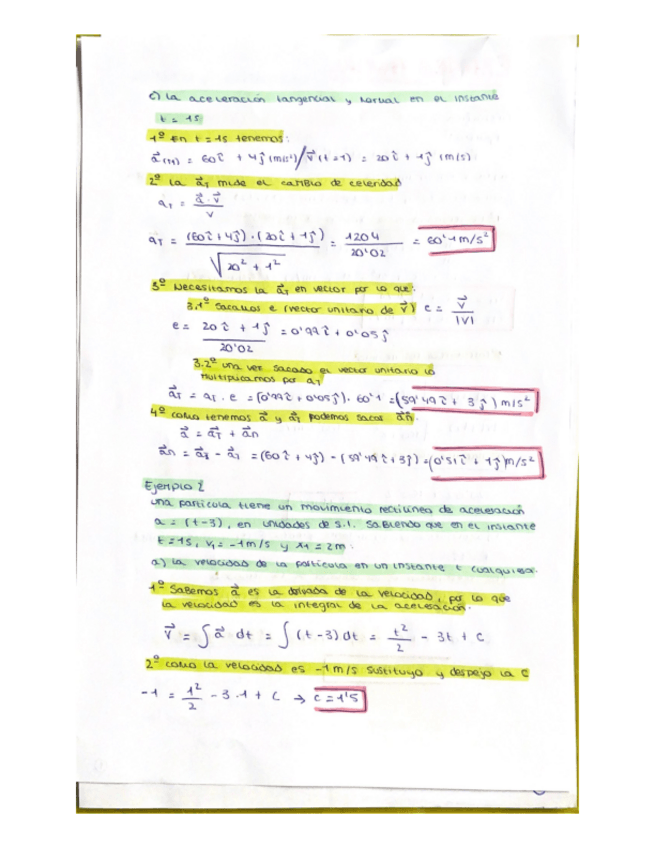 c) La aceleración tangencial y normal en el instante
t = 1s
1º En t = 1s tenemos:
a⃗(t=1) = 60î + 4ĵ (m/s²) / v⃗(t=1) = 20î + 1ĵ (m/s)
2º La a⃗T mide el cambio de celeridad
aT = a⃗·v⃗ / v
a⃗T = (60î+4ĵ)·(20î+1ĵ) / √20²+1² = 1204 / 20'02 = 60'1 m/s²
3º Necesitamos la a⃗T en vector por lo que:
3.1º Sacamos e (vector unitario de v⃗) e = v⃗ / |v|
e = 20î + 1ĵ / 20'02 = 0'99î + 0'05ĵ
3.2º una vez sacado el vector unitario lo
multiplicamos por aT
a⃗T = aT · e = (0'99î + 0'05ĵ) · 60'1 = (59'49î + 3ĵ) m/s²
4º como tenemos a⃗ y a⃗T podemos sacar a⃗n.
a⃗ = a⃗T + a⃗n
a⃗n = a⃗ - a⃗T = (60î + 4ĵ) - (59'49î + 3ĵ) = (0'51î + 1ĵ) m/s²
Ejemplo 2
una partícula tiene un movimiento rectilíneo de aceleración
a = (t-3), en unidades de S.I. Sabiendo que en el instante
t = 1s, v1 = -1 m/s y x1 = 2m.
a) La velocidad de la partícula en un instante t cualquiera.
1º Sabemos a⃗ es la derivada de la velocidad, por lo que
la velocidad es la integral de la aceleración.
v⃗ = ∫ a⃗ dt = ∫ (t-3) dt = t²/2 - 3t + C
2º como la velocidad es -1 m/s sustituyo y despejo la C
-1 = 1²/2 - 3·1 + C → C = 1'5